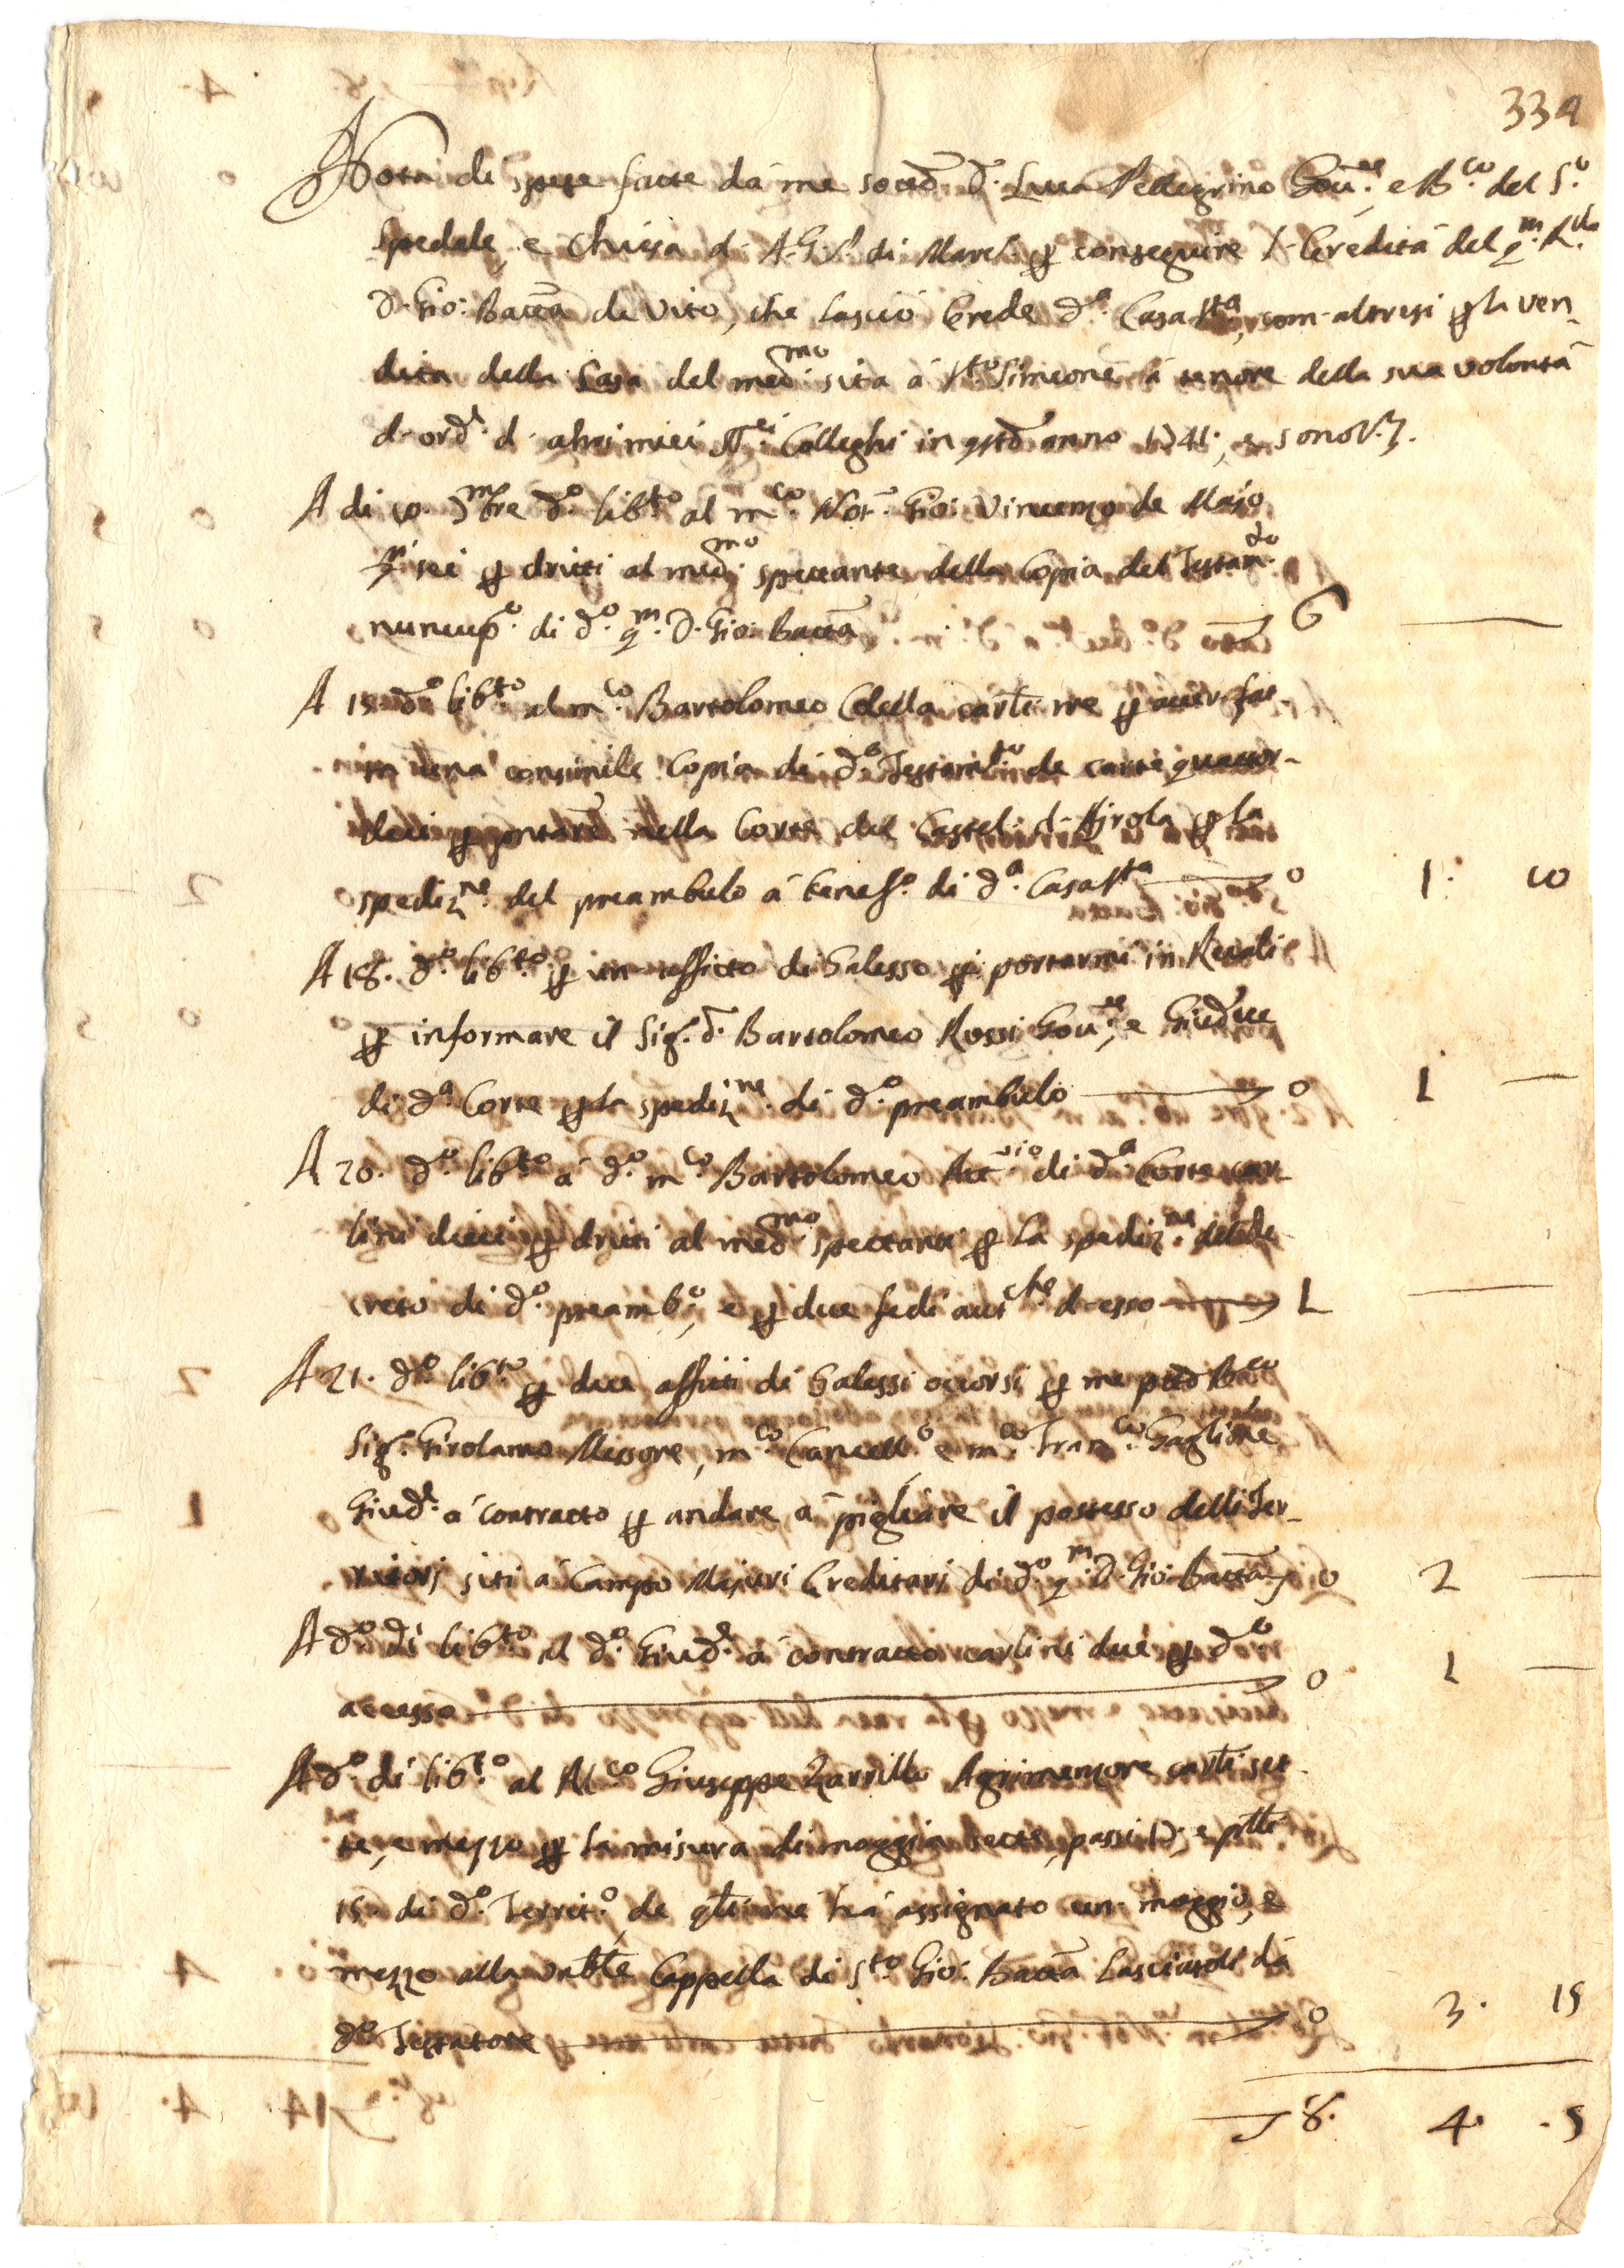 334
Nota di spese fatte dà me sottõ D. Luca Pellegrino Gou.re, e R.co del S.o
Spedale, e Chiesa d. A.G.P. di Marc. p conseguire l'heredità del q.m R.do
D. Gio: Battã de Vito, che lasciò herede d.a Casa S.ta, com altresi p la ven_
dita della Casa del med.mo sita à S.to Simeone à tenore della sua volontà
d. ord.e d. altri miei Colleghi in anno 1741, e sono V.3.
A di 10. d.o lib.to al m.co Not. Gio: Vincenzo de Maio
sei p dritti al med.mo spettante della Copia del Testam.to
nuncup.o di d.o q.m D. Gio: Battã 6 —
A 15 d.o lib.to al m.co Bartolomeo Colella carl: tre p auer fat_
to una consimile Copia di d.o Testam.to de carte quattor_
deci p portare nella Corte del Castel. d. Airola p la
spediz.ne del preambulo à benef.o di d.a Casa S.ta 0 1. 10
A 18. d.o lib.to p un affitto di Galesso p portarmi in
p informare il Sig.r D. Bartolomeo Rossi Gou.re, e Giudice
di d.a Corte p la spediz.ne di d.o preambulo 0 1 —
A 20. d.o lib.to à d.o m.co Bartolomeo Att.rio di d.a Corte car_
lini dieci p dritti al med.mo spettanti p la spediz.ne del de_
creto di d.o preamb.o, e p due fedi aut.che d. esso 1 —
A 21. d.o lib.to p due affitti di Galessi occorsi p me R.co
Sig.r Girolamo Messore, m.co Cancell.o e m.co Fran.co Gaglione
Giud.e à contratto p andare à pigliare il possesso delli Ter_
ritorj siti à Campo Majuri hereditarj di d.o q.m D. Gio: Battã 0 2 —
A d.o di lib.to al d.o Giud.e à contratto carlini due p d.o
accesso 0 1 —
A d.o di lib.to al M.co Giuseppe Zarrillo Agrimensore carl: set_
te, e mezzo p la misura di moggia sette, passi 17, e
15 di d.o Territ.o, de assignato un moggio, e
mezzo alla Cappella di S.to Gio: Battã lasciatoli dà
d.o Testatore 0 3. 15
8. 4. 5